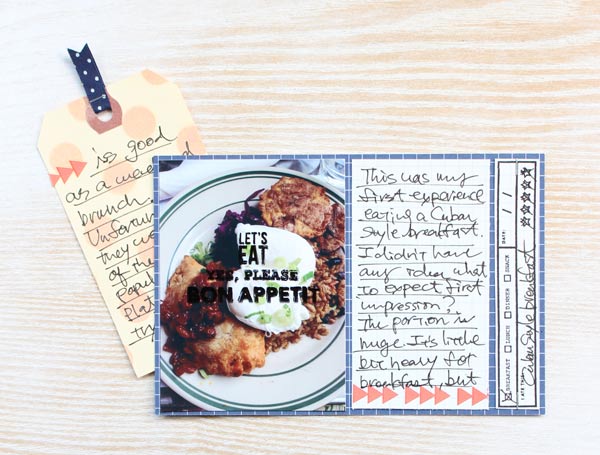 is good
as a weekend
brunch.
they
of the
LET'S
EAT
YES, PLEASE
BON APPETIT
This was my
first experience
eating a Cuban
Style breakfast.
I didn't have
any idea what
to expect. First
impression?
The portion is
huge. It's little
bit heavy for
breakfast, but
DATE: / /
BREAKFAST LUNCH DINNER SNACK
I ATE THIS:
Cuban Style Breakfast